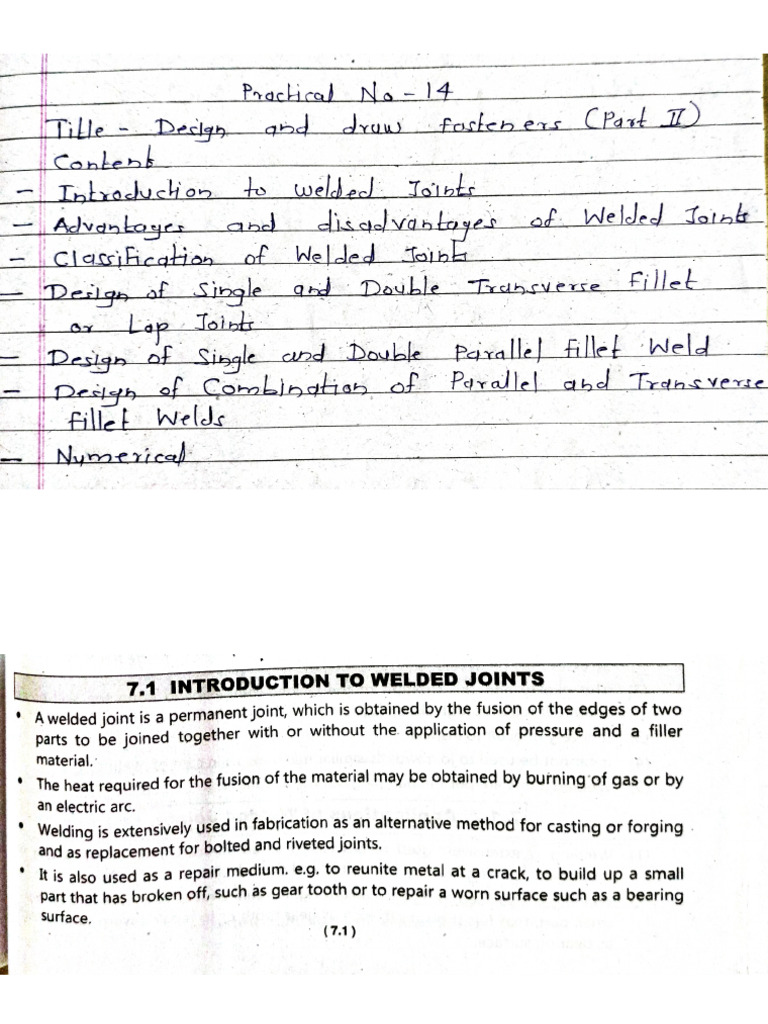 Practical No - 14
Title - Design and draw fasteners (Part II)
Content
- Introduction to welded Joints
- Advantages and disadvantages of Welded Joints
- Classification of Welded Joints
- Design of Single and Double Transverse Fillet
or Lap Joints
- Design of Single and Double Parallel fillet Weld
- Design of Combination of Parallel and Transverse
fillet Welds
- Numerical
7.1 INTRODUCTION TO WELDED JOINTS
• A welded joint is a permanent joint, which is obtained by the fusion of the edges of two
parts to be joined together with or without the application of pressure and a filler
material.
• The heat required for the fusion of the material may be obtained by burning of gas or by
an electric arc.
• Welding is extensively used in fabrication as an alternative method for casting or forging
and as replacement for bolted and riveted joints.
• It is also used as a repair medium. e.g. to reunite metal at a crack, to build up a small
part that has broken off, such as gear tooth or to repair a worn surface such as a bearing
surface.
(7.1)